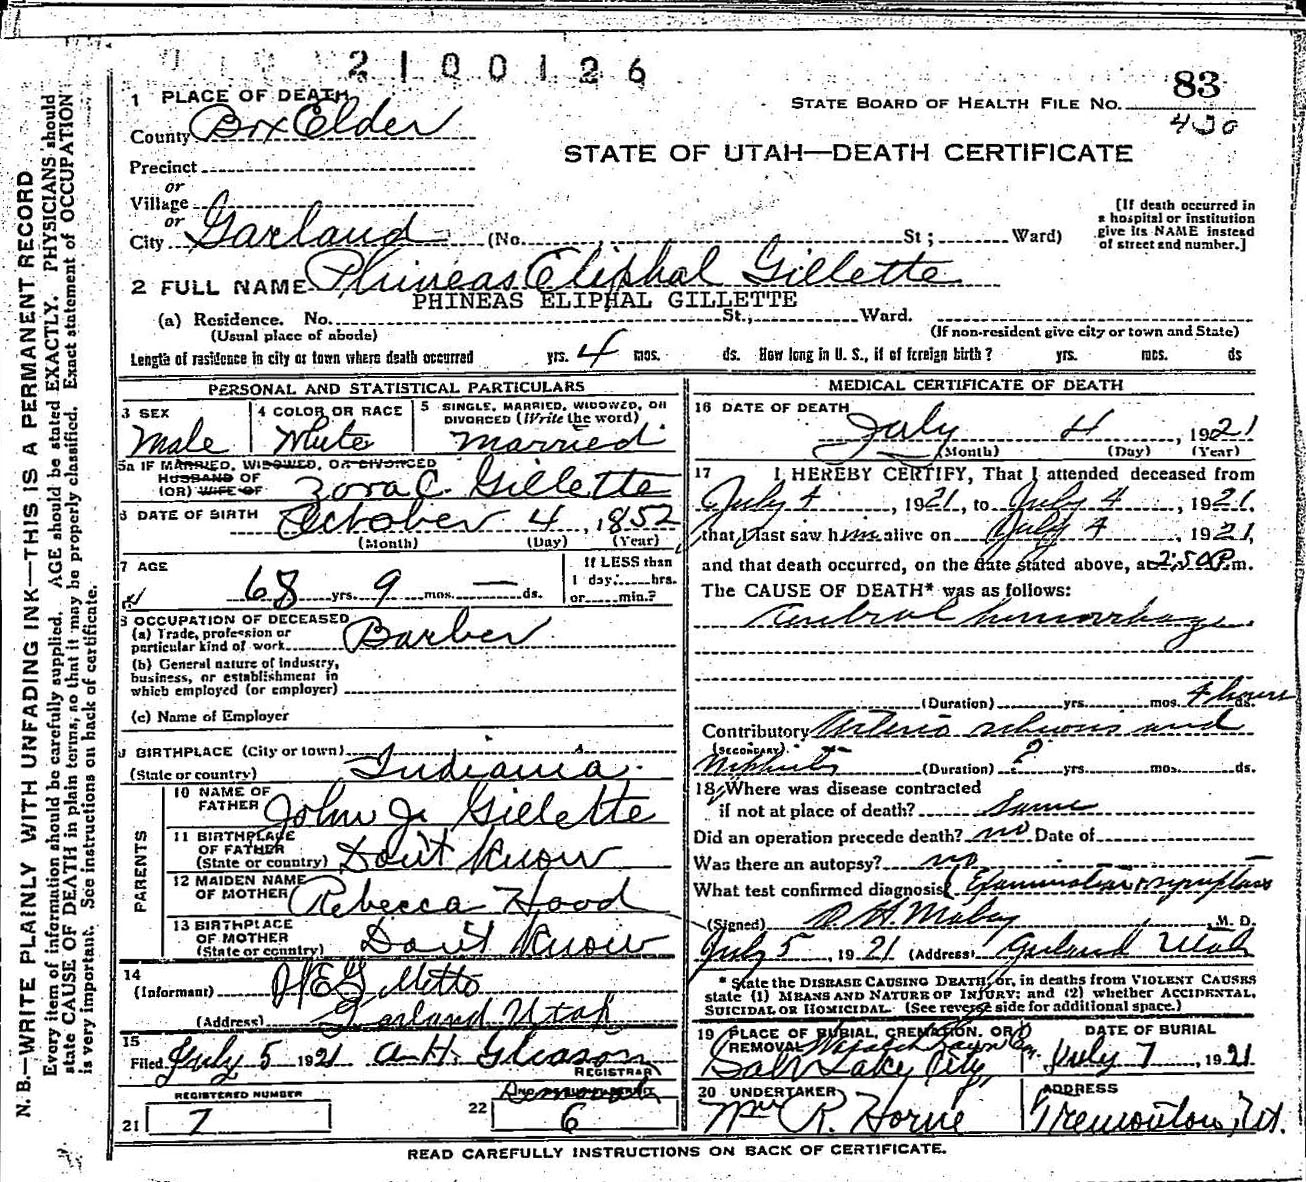 2100126
83
STATE BOARD OF HEALTH FILE NO.
430
STATE OF UTAH—DEATH CERTIFICATE
1 PLACE OF DEATH
County Box Elder
Precinct
or
Village
or
City Garland (No. St; Ward)
[If death occurred in
a hospital or institution
give its NAME instead
of street and number.]
2 FULL NAME Phineas Eliphal Gillette
PHINEAS ELIPHAL GILLETTE
(a) Residence. No. St., Ward.
(Usual place of abode) (If non-resident give city or town and State)
Length of residence in city or town where death occurred yrs. 4 mos. ds. How long in U. S., if of foreign birth? yrs. mos. ds
PERSONAL AND STATISTICAL PARTICULARS
3 SEX
Male
4 COLOR OR RACE
White
5 SINGLE, MARRIED, WIDOWED, OR
DIVORCED (Write the word)
Married
5a IF MARRIED, WIDOWED, OR DIVORCED
HUSBAND OF
(OR) WIFE OF Zora C. Gillette
6 DATE OF BIRTH October 4, 1852
(Month) (Day) (Year)
7 AGE
68 yrs. 9 mos. — ds.
If LESS than
1 day, hrs.
or min.?
8 OCCUPATION OF DECEASED
(a) Trade, profession or
particular kind of work Barber
(b) General nature of industry,
business, or establishment in
which employed (or employer)
(c) Name of Employer
9 BIRTHPLACE (City or town)
(State or country) Indiana
PARENTS
10 NAME OF
FATHER John J. Gillette
11 BIRTHPLACE
OF FATHER
(State or country) Don't Know
12 MAIDEN NAME
OF MOTHER Rebecca Hood
13 BIRTHPLACE
OF MOTHER
(State or country) Don't Know
14
(Informant) Gillette
(Address) Garland Utah
15
Filed July 5 1921 A. H. Gleason
REGISTRAR
REGISTERED NUMBER
21 7
22 6
MEDICAL CERTIFICATE OF DEATH
16 DATE OF DEATH
July 4, 1921
(Month) (Day) (Year)
17 I HEREBY CERTIFY, That I attended deceased from
July 4, 1921, to July 4, 1921,
that I last saw him alive on July 4, 1921,
and that death occurred, on the date stated above, at 2:50 P.m.
The CAUSE OF DEATH* was as follows:
Cerebral hemorrhage.
(Duration) yrs. mos. 4 hours ds.
Contributory Arterio sclerosis and
(SECONDARY)
Nephritis (Duration) ? yrs. mos. ds.
18 Where was disease contracted
if not at place of death? Same
Did an operation precede death? no Date of
Was there an autopsy? no
What test confirmed diagnosis Examination & symptoms
(Signed) H. Mabey M. D.
July 5, 1921 (Address) Garland Utah
* State the DISEASE CAUSING DEATH, or, in deaths from VIOLENT CAUSES
state (1) MEANS AND NATURE OF INJURY; and (2) whether ACCIDENTAL,
SUICIDAL OR HOMICIDAL. (See reverse side for additional space.)
19 PLACE OF BURIAL, CREMATION, OR
REMOVAL Wasatch Lawn
Salt Lake City
DATE OF BURIAL
July 7, 1921
20 UNDERTAKER
R. Horne
ADDRESS
Tremonton, Ut.
READ CAREFULLY INSTRUCTIONS ON BACK OF CERTIFICATE.
N. B.—WRITE PLAINLY WITH UNFADING INK—THIS IS A PERMANENT RECORD
Every item of information should be carefully supplied. AGE should be stated EXACTLY. PHYSICIANS should
state CAUSE OF DEATH in plain terms, so that it may be properly classified. Exact statement of OCCUPATION
is very important. See instructions on back of certificate.